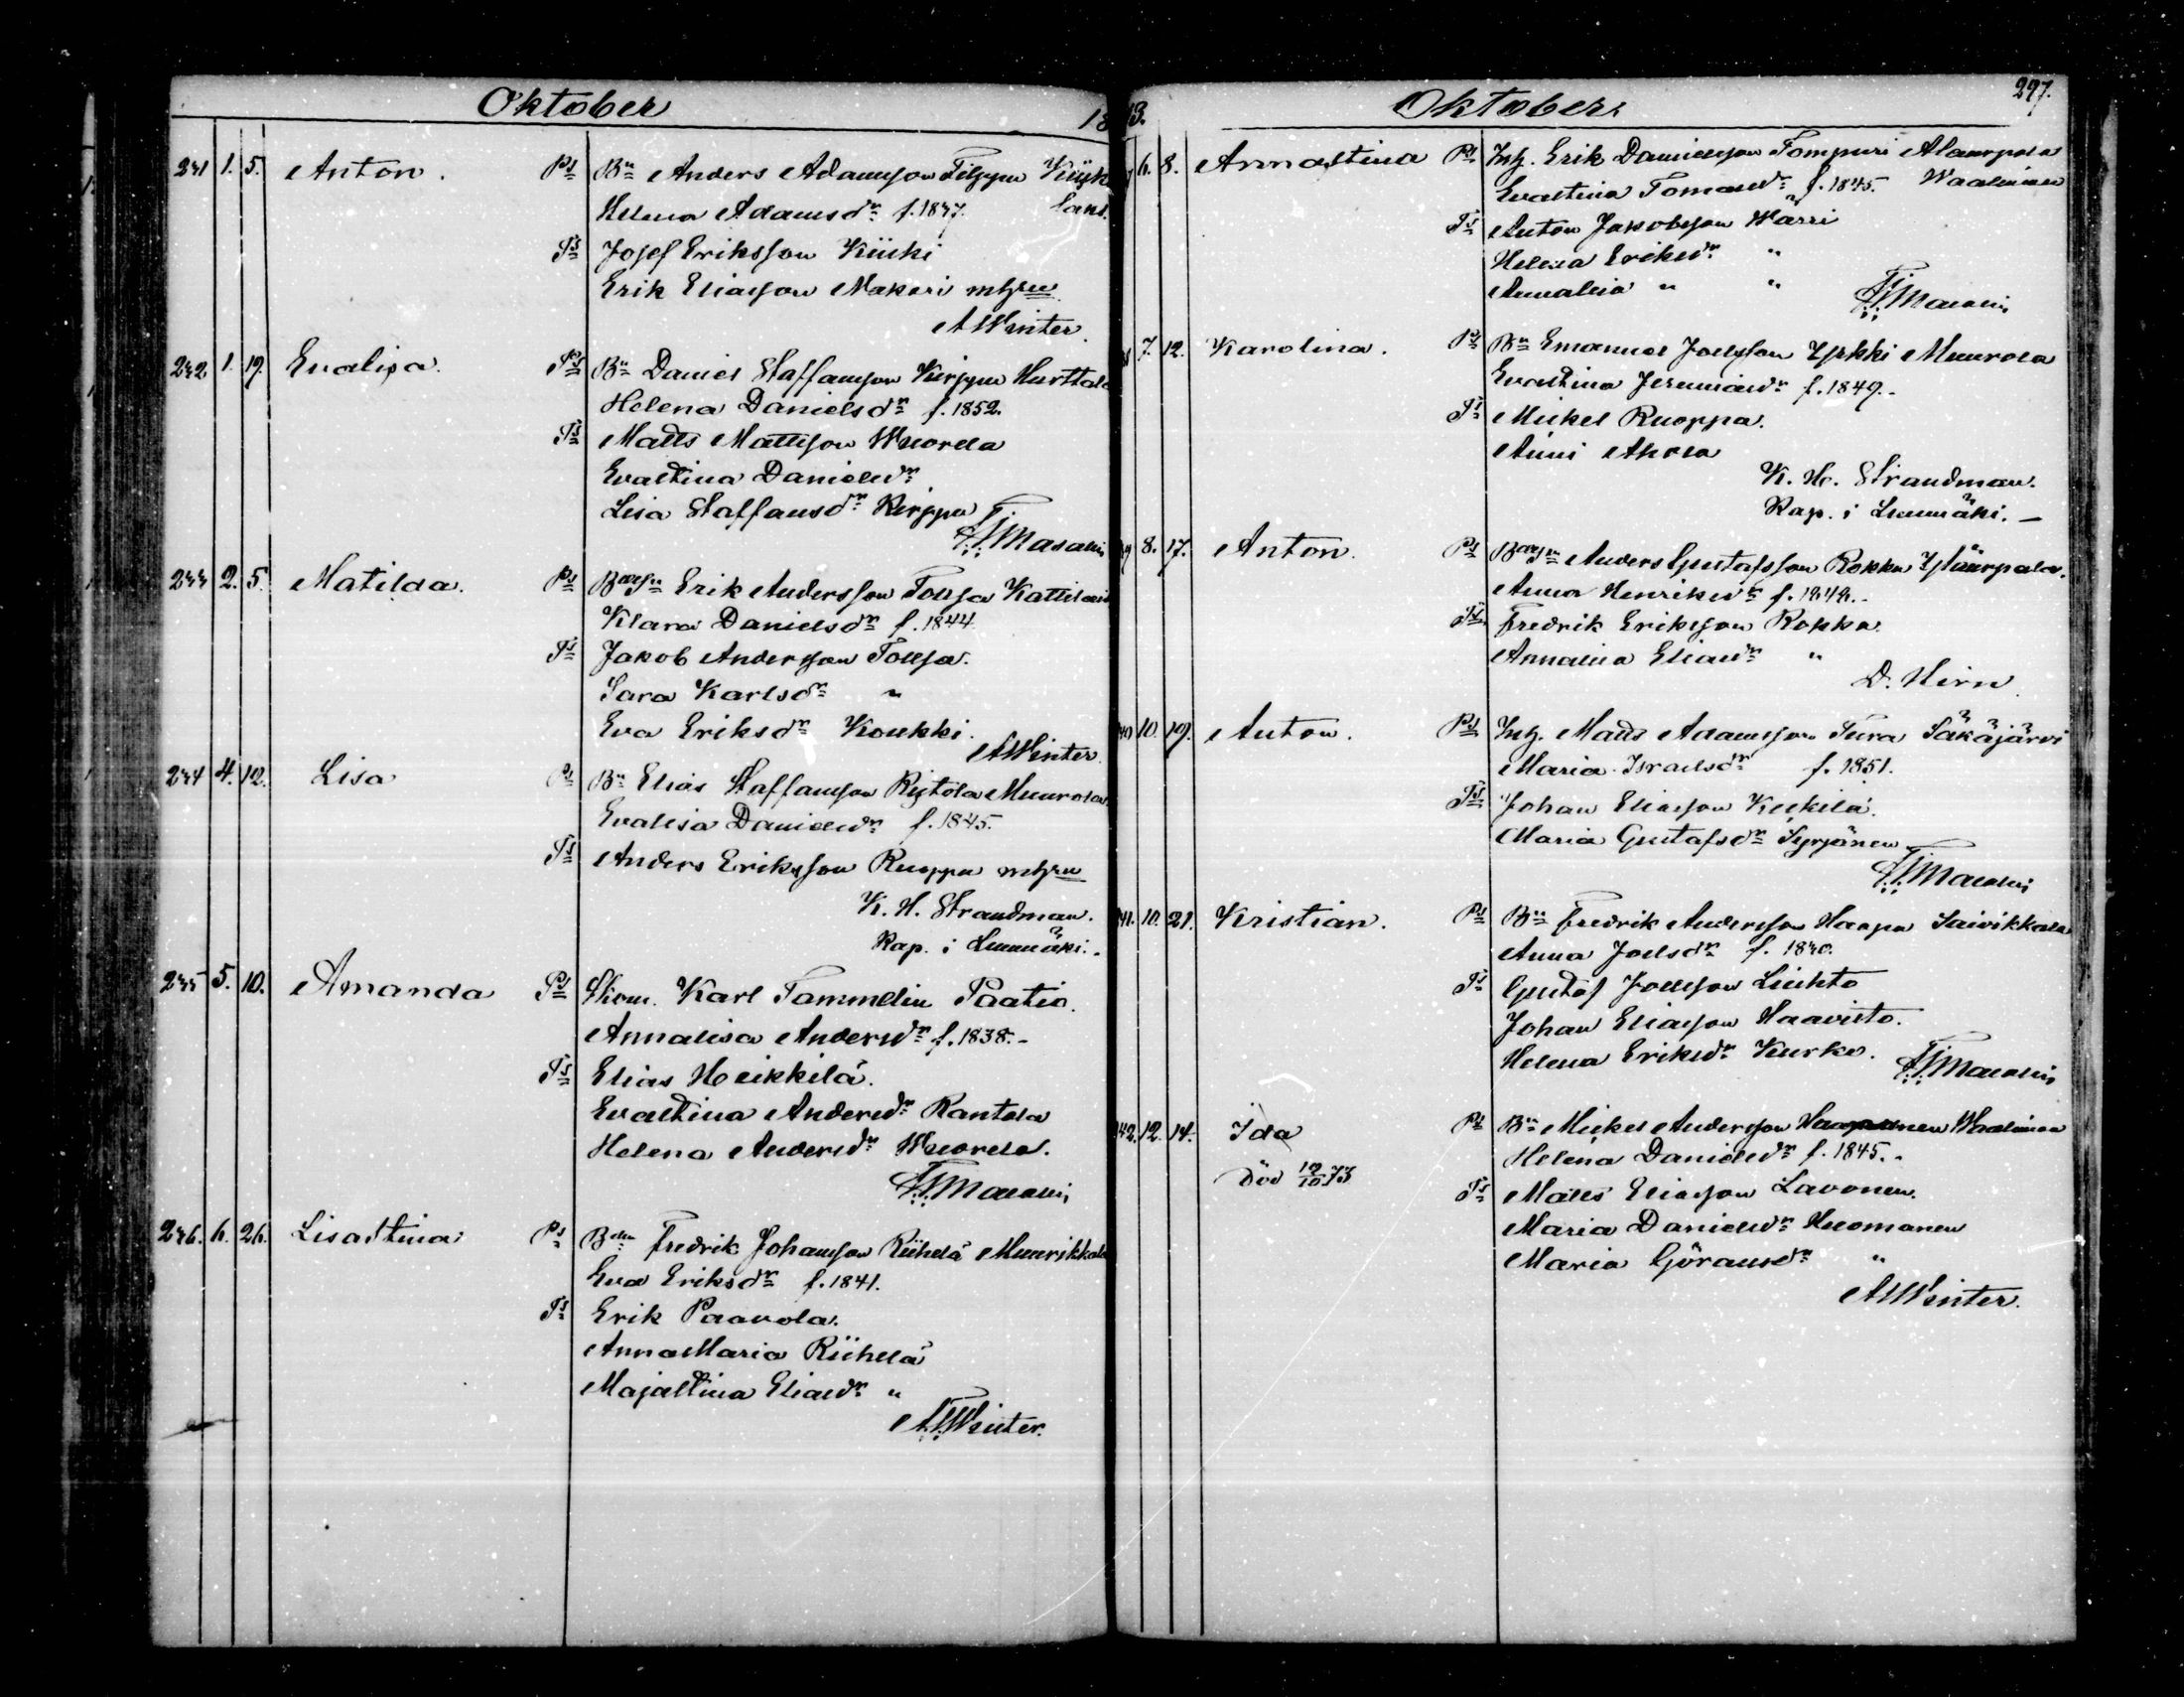 Oktober 18
231 1. 5. Anton. Ps Bn Anders Adamsson Filppu Kiisk
Helena Adamsdr f. 1847. lans.
Ts Josef Eriksson Kiiski
Erik Eliasson Makari mhru
A Winter.
232 1. 19. Evalisa. Ps Bn Daniel Staffansson Kirppu Hurttala
Helena Danielsdr f. 1852.
Ts Matts Mattsson Wuorela
Evastina Danielsdr
Lisa Staffansdr Kirppu
Masalin
233 2. 5. Matilda. Ps Erik Andersson Tousa Kattelais
Klara Danielsdr f. 1844
Ts Jakob Andersson Tousa.
Sara Karlsdr "
Eva Eriksdr Koukki.
A Winter.
234 4. 12. Lisa Ps Bn Elias Staffansson Ristola Muurola
Evalisa Danielsdr f. 1845.
Ts Anders Eriksson Ruoppa mhru
K. H. Strandman.
Kap. i Lemmäki.-
235 5. 10. Amanda Ps Skom. Karl Tammelin Paatio.
Annalisa Andersdr f. 1838.-
Ts Elias Heikkilä.
Evastina Andersdr Rantala
Helena Andersdr Wuorela.
Masalin
236. 6. 26. Lisastina Ps Fredrik Johansson Riihelä Muurikkala
Eva Eriksdr f. 1841.
Ts Erik Paavola.
AnnaMaria Riihelä
Majastina Eliasdr "
A Winter.
73. Oktober. 297.
6. 8. Annastina Ps Inh. Erik Danielsson Tompuri Alaurpala
Evastina Tomasdr f. 1845. Waalimaa
Ts Anton Jakobsson Wärri
Helena Eriksdr "
Annalisa " "
Masalin
7. 12. Karolina. Ps Bn Emanuel Joelsson Yrkki Muurola
Evastina Jeremiasdr f. 1849.-
Ts Mickel Ruoppa.
Anni Ahola
K. H. Strandman.
Kap. i Lemmäki. -
8. 17. Anton. Ps Anders Gustafsson Rokka Yläurpala.
Anna Henriksdr f. 1842.-
Ts Fredrik Eriksson Rokka.
Annalisa Eliasdr "
D. Hirn.
40 10. 19. Anton. Ps Inh. Matts Adamsson Tura Säkäjärvi
Maria Israelsdr f. 1851.
Ts Johan Eliasson Keskilä.
Maria Gustafsdr Syrjänen
Masalin
41. 10. 21. Kristian. Ps Bn Fredrik Andersson Haapa Saivikkala
Anna Joelsdr f. 1830.
Ts Gustaf Joelsson Liuhto
Johan Eliasson Haavisto.
Helena Eriksdr Kurko.
Masalin
42. 12. 14. Ida Ps Bn Mickel Andersson Haapanen Waalimaa
Helena Danielsdr f. 1845.-
Död 19/10 73
Ts Matts Eliasson Lavonen.
Maria Danielsdr Huomanen
Maria Göransdr "
A Winter.